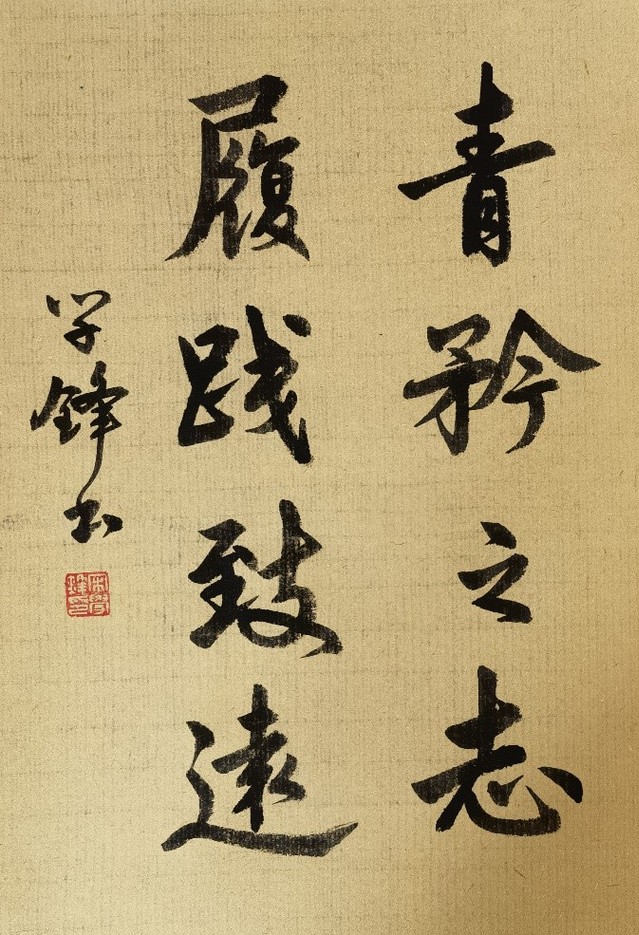 青矜之志
履践致遠
学锋书